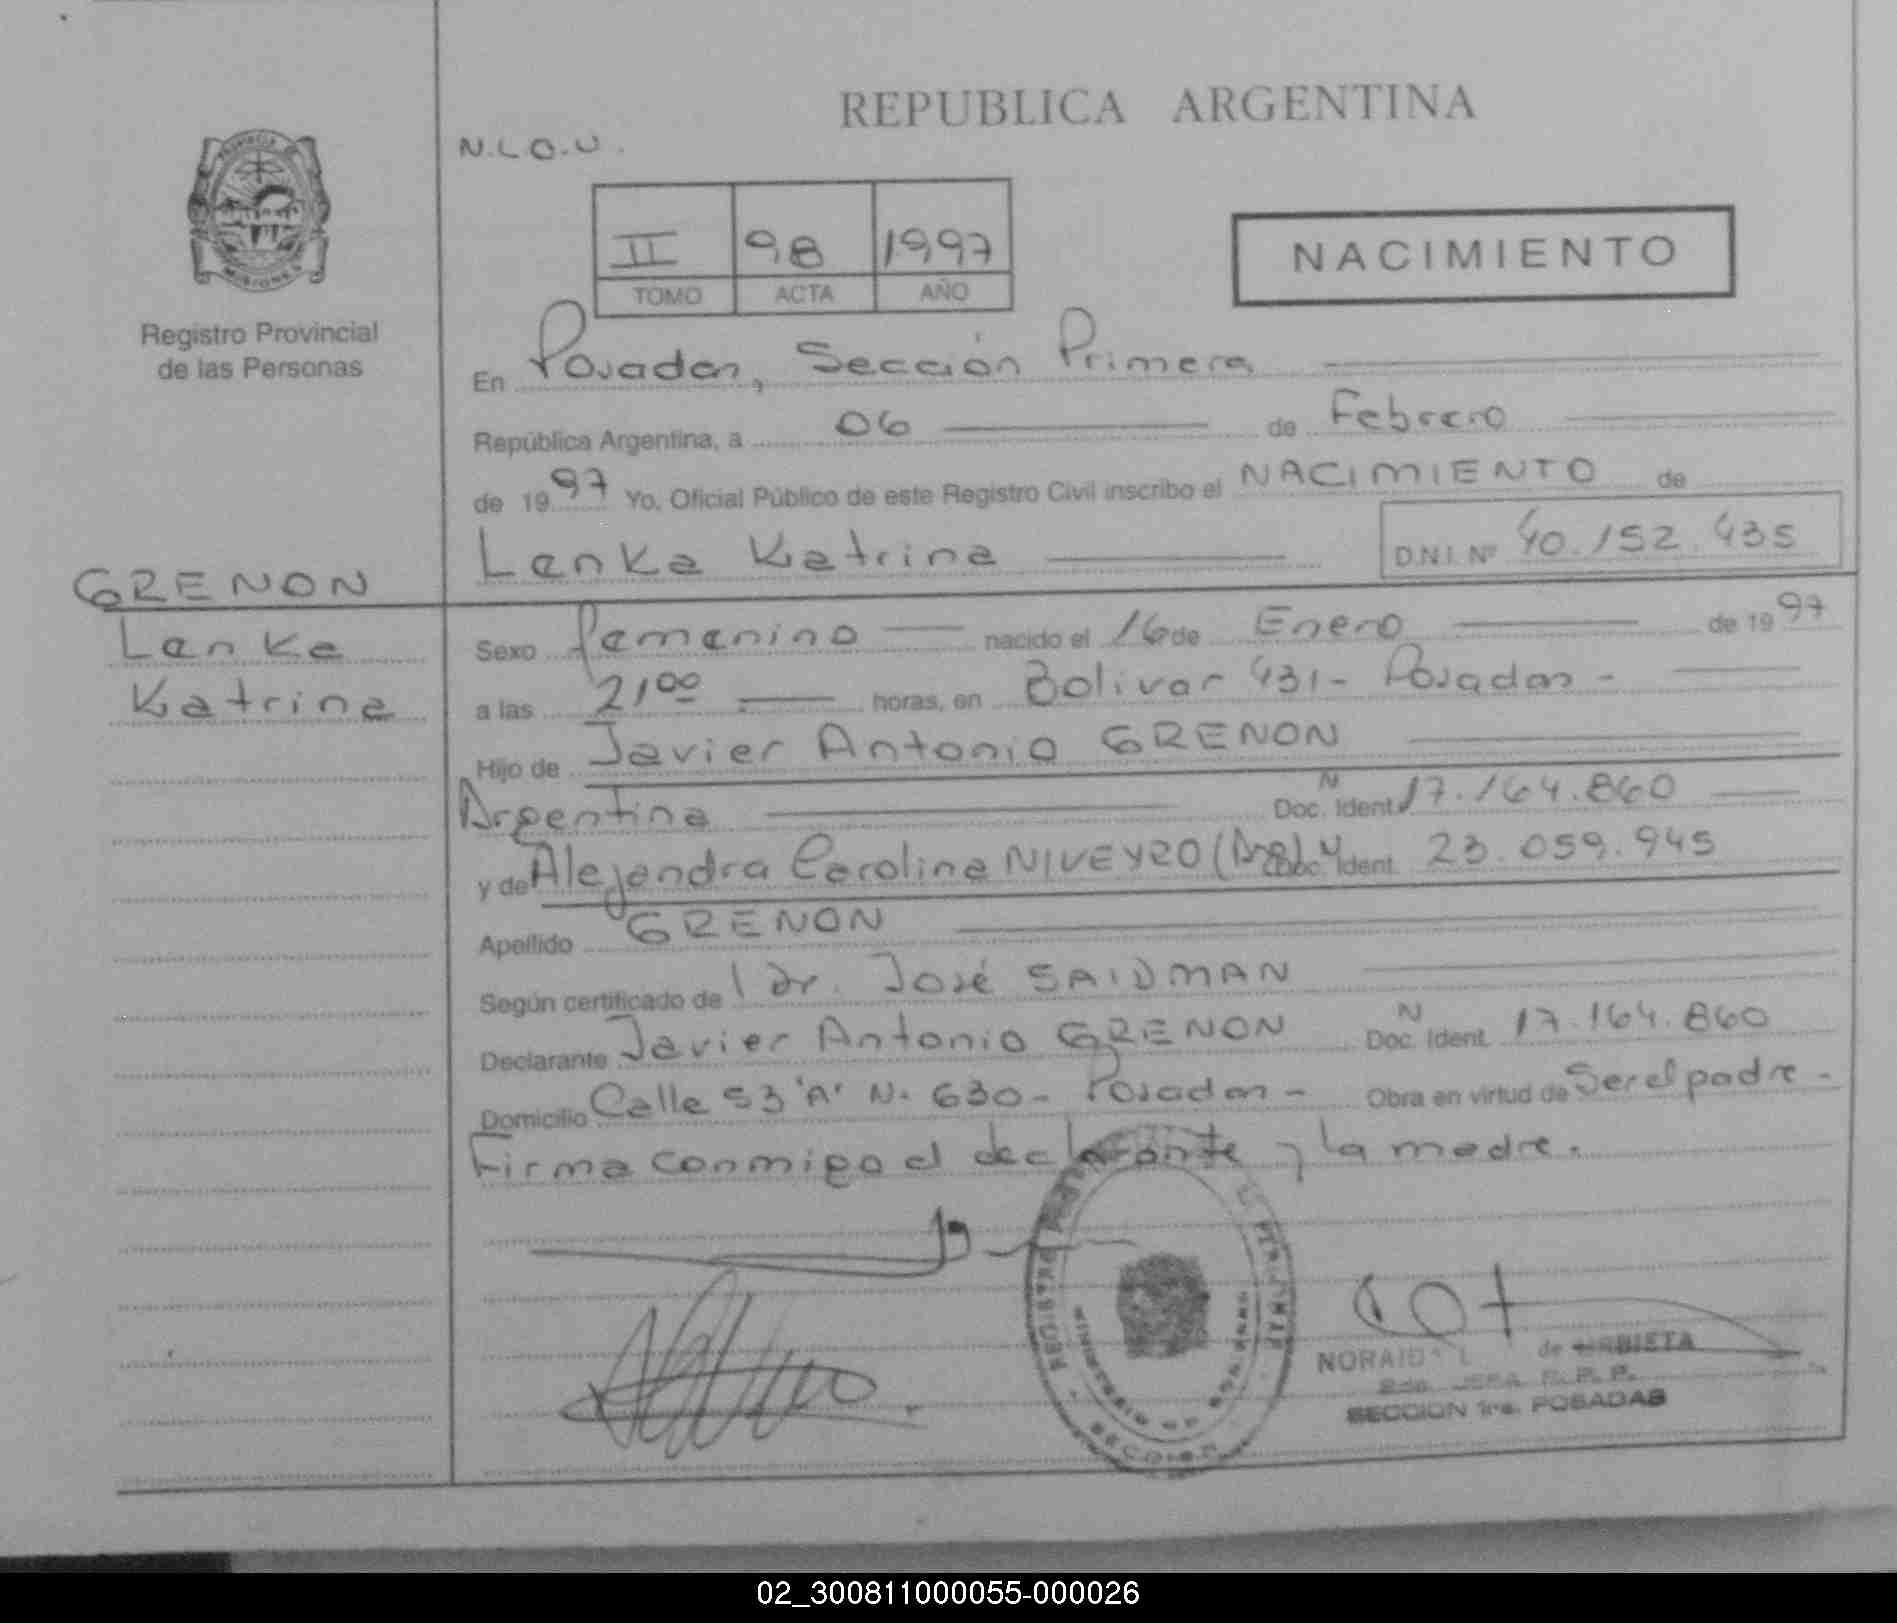 REPUBLICA ARGENTINA
N.L.O.U.
II 98 1997
TOMO ACTA AÑO
NACIMIENTO
PROVINCIA DE
MISIONES
Registro Provincial
de las Personas
En Posadas, Sección Primera
República Argentina, a 06 de Febrero
de 1997 Yo, Oficial Público de este Registro Civil inscribo el NACIMIENTO de
Lenka Katrina D.N.I. Nº 40.152.435
GRENON
Lenka
Katrina
Sexo femenino nacido el 16 de Enero de 1997
a las 21,00 horas, en Bolivar 431 - Posadas -
Hijo de Javier Antonio GRENON
Argentina Doc. Ident. N 17.164.860
y de Alejandra Carolina NIVEYRO (Arg) Doc. Ident. 23.059.945
Apellido GRENON
Según certificado de l Dr. José SAIDMAN
Declarante Javier Antonio GRENON Doc. Ident. N 17.164.860
Domicilio Calle 53 "A" N. 630 - Posadas - Obra en virtud de Ser el padre -
Firma conmigo el declarante y la madre.
NORAIDA de URBIETA
JEFA R. P. P.
SECCION 1ra. POSADAS
SECCION
02_300811000055-000026